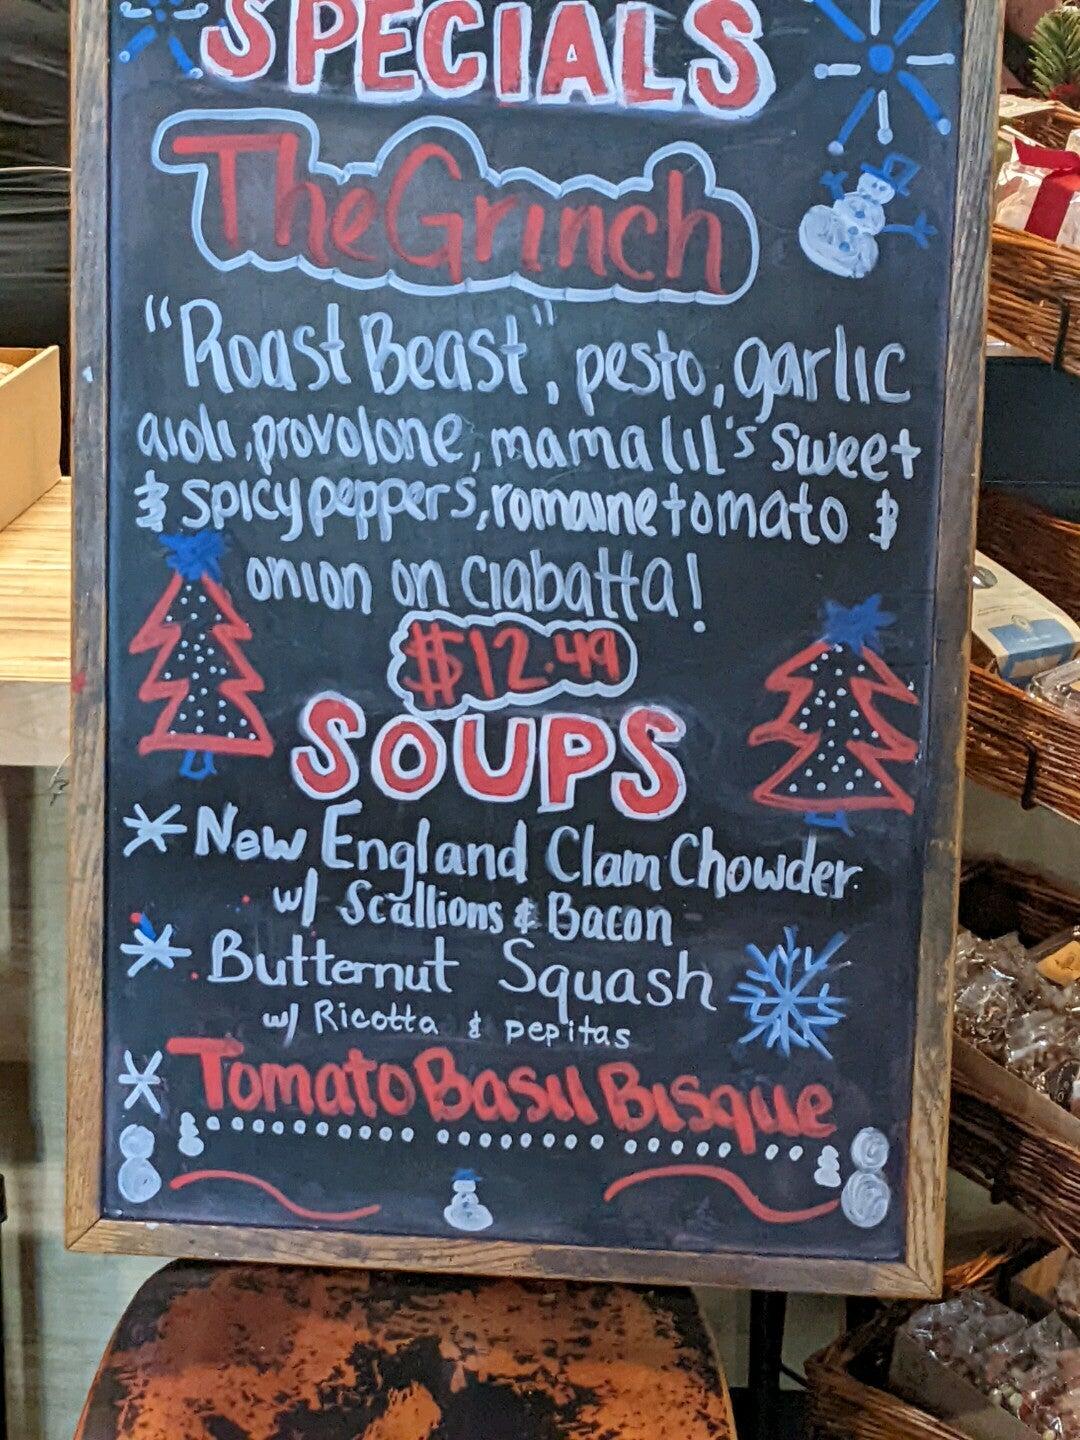 SPECIALS
The Grinch
"Roast Beast", pesto, garlic
aioli, provolone, mama lil's sweet
& spicy peppers, romaine tomato &
onion on ciabatta!
$12.49
SOUPS
* New England Clam Chowder
w/ Scallions & Bacon
* Butternut Squash
w/ Ricotta & pepitas
* Tomato Basil Bisque